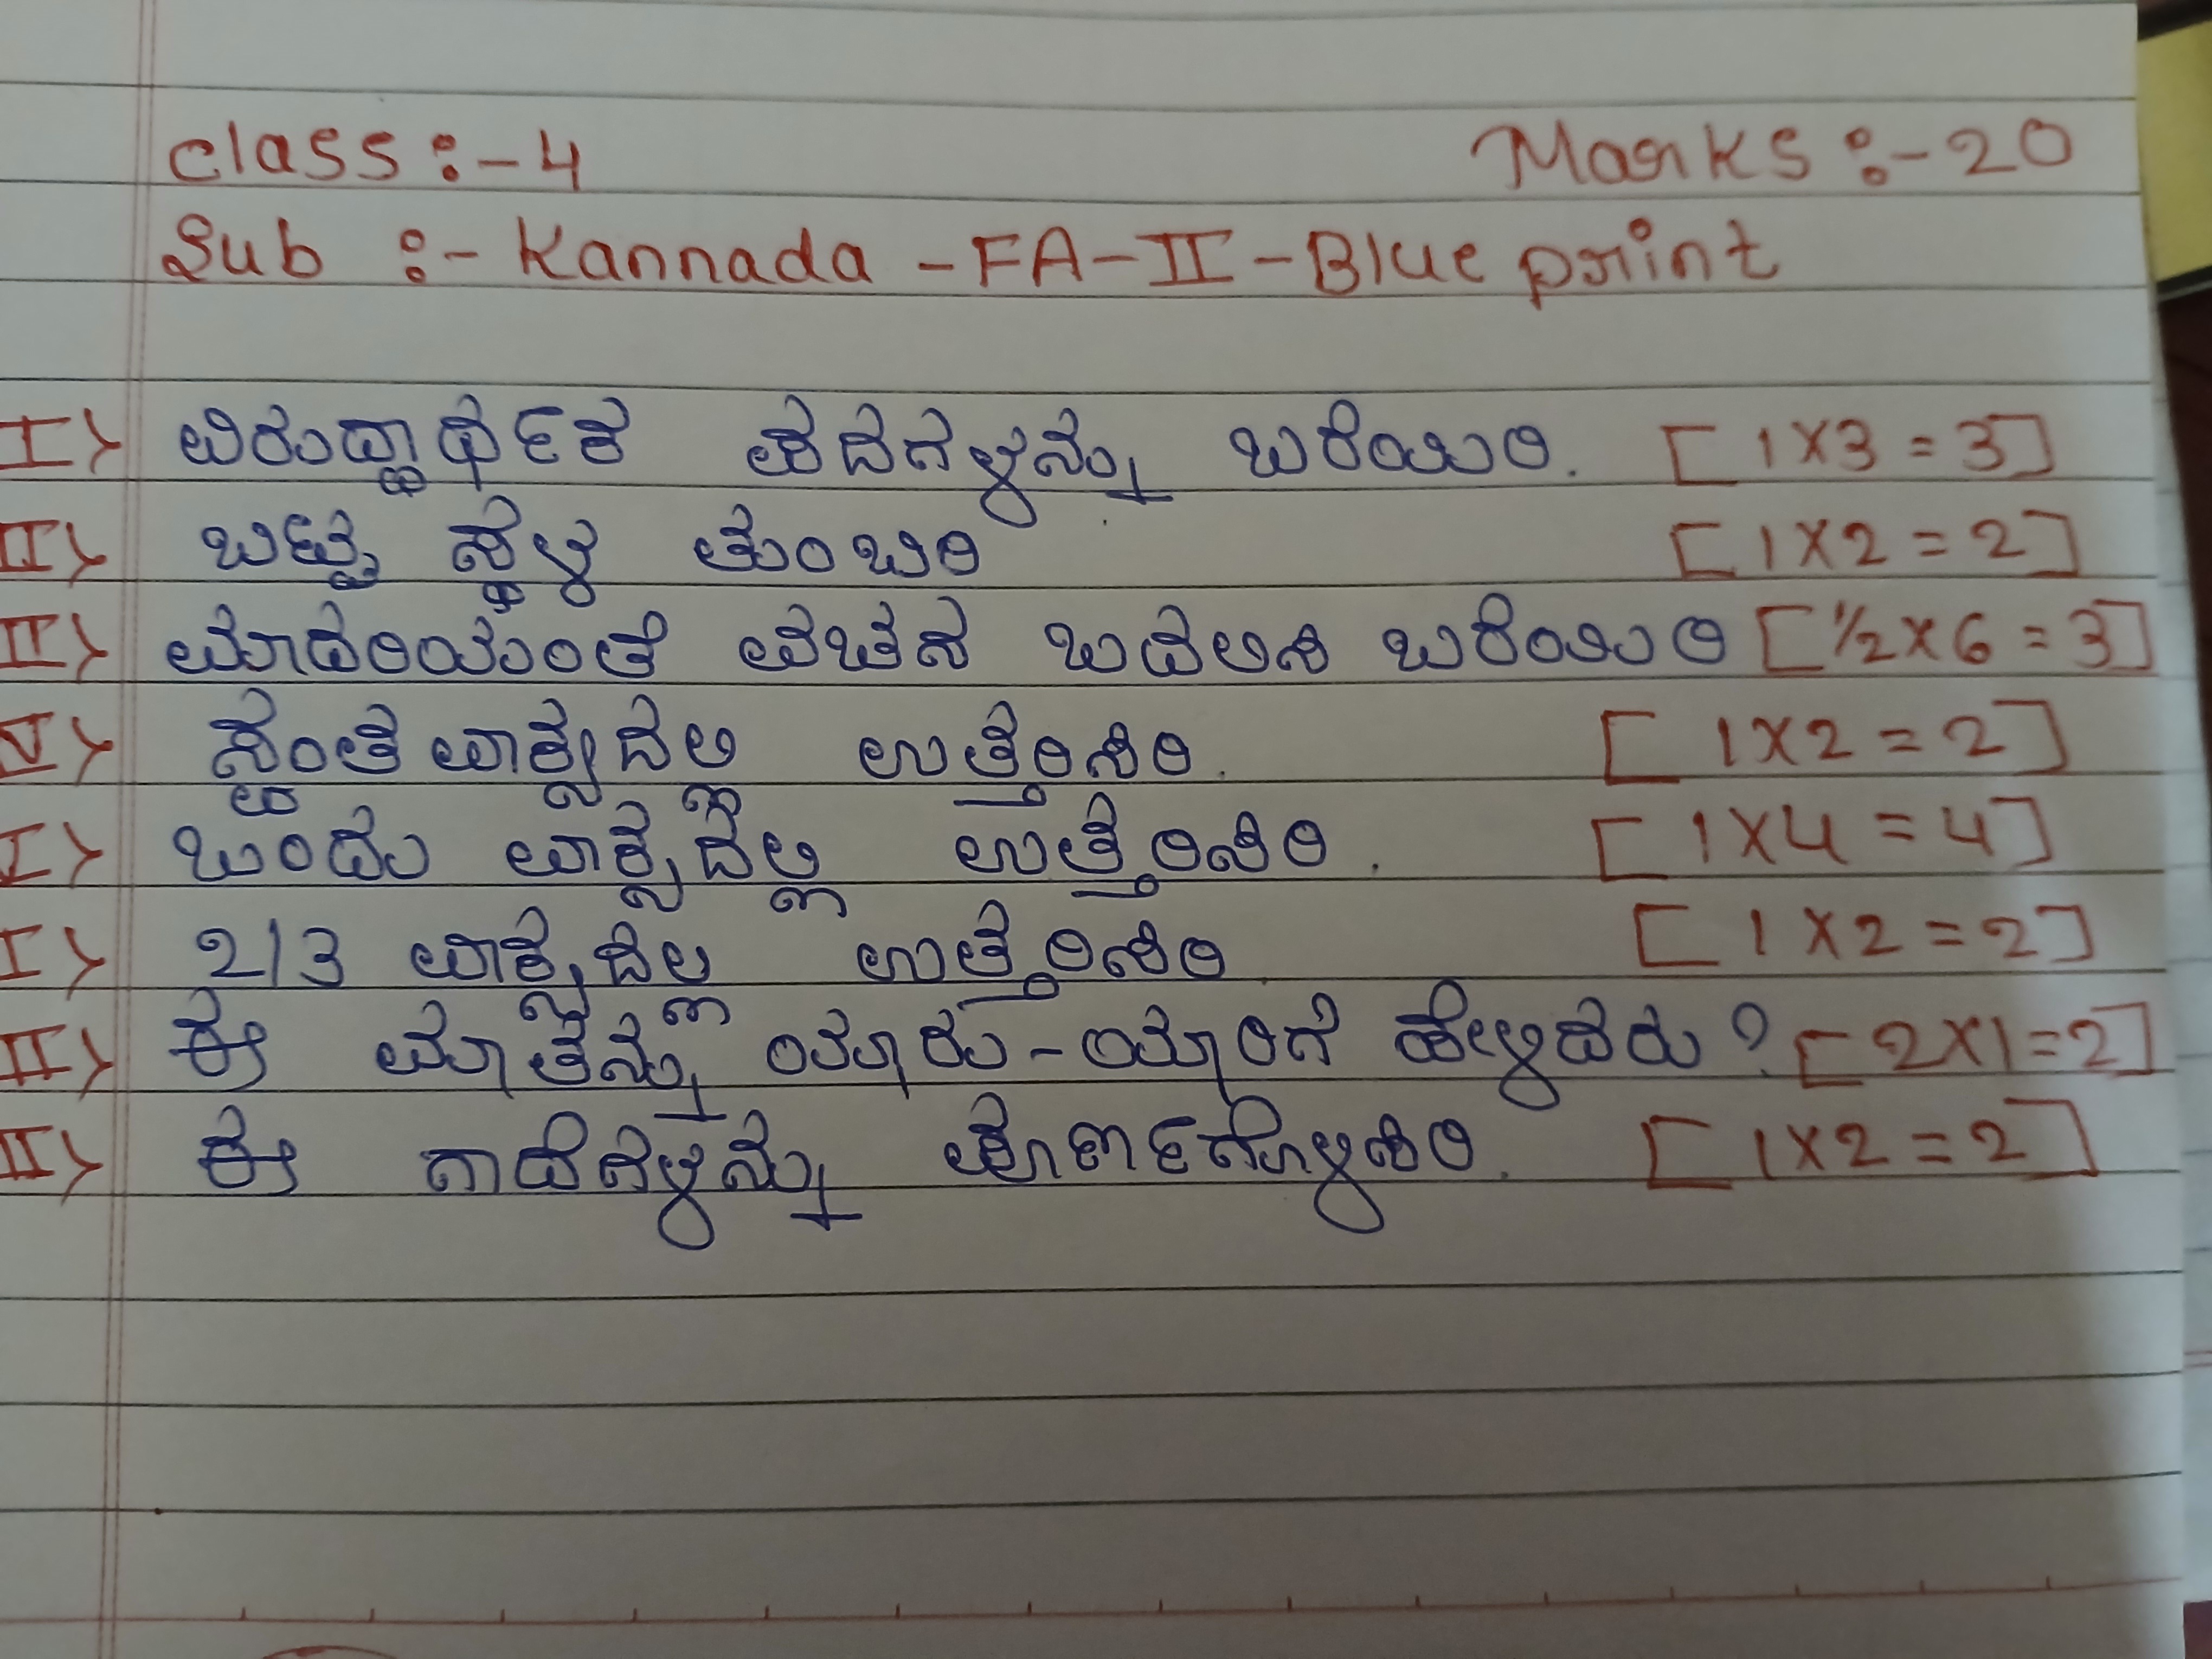 Class :- 4 Marks :- 20
Sub :- Kannada - FA - II - Blue print
I> ವಿರುದ್ಧಾರ್ಥಕ ಪದಗಳನ್ನು ಬರೆಯಿರಿ. [ 1 X 3 = 3 ]
II> ಬಿಟ್ಟ ಸ್ಥಳ ತುಂಬಿರಿ [ 1 X 2 = 2 ]
II> ಮಾದರಿಯಂತೆ ವಚನ ಬದಲಿಸಿ ಬರೆಯಿರಿ [ ½ X 6 = 3 ]
V> ಸ್ವಂತ ವಾಕ್ಯದಲ್ಲಿ ಉತ್ತರಿಸಿರಿ. [ 1 X 2 = 2 ]
I> ಒಂದು ವಾಕ್ಯದಲ್ಲಿ ಉತ್ತರಿಸಿರಿ. [ 1 X 4 = 4 ]
I> 2/3 ವಾಕ್ಯದಲ್ಲಿ ಉತ್ತರಿಸಿರಿ. [ 1 X 2 = 2 ]
II> ಈ ಮಾತನ್ನು ಯಾರು - ಯಾರಿಗೆ ಹೇಳಿದರು ? [ 2 X 1 = 2 ]
II> ಈ ಗಾದೆಗಳನ್ನು ಪೂರ್ಣಗೊಳಿಸಿರಿ. [ 1 X 2 = 2 ]